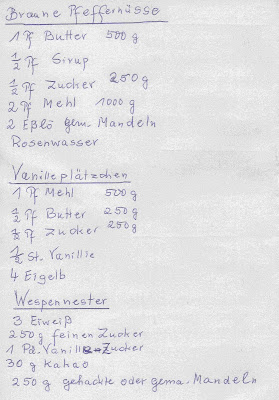 Braune Pfeffernüsse
1 Pf Butter 500 g
1/2 Pf Sirup
1/2 Pf Zucker 250 g
2 Pf Mehl 1000 g
2 Eßlö gem. Mandeln
Rosenwasser
Vanilleplätzchen
1 Pf Mehl 500 g
1/2 Pf Butter 250 g
1/2 Pf Zucker 250 g
1/2 St. Vanillie
4 Eigelb
Wespennester
3 Eiweiß
250 g feinen Zucker
1 Pä. Vanill Zucker
30 g Kakao
250 g gehackte oder gema. Mandeln